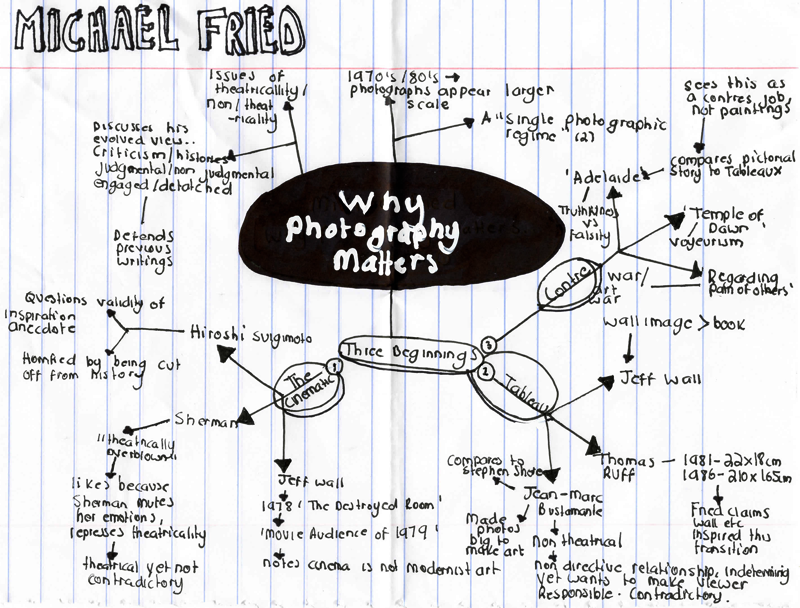 MICHAEL FRIED
Issues of
theatricallity
non/theat
-ricality
1970's/80's →
photographs appear larger
scale
A "single photographic
regime. (2)
sees this as
a contres job,
not paintings
compares pictorial
story to Tableaux
Discusses his
evolved view..
Criticism/histories
judgmental/non judgmental
engaged/detatched
Defends
previous
writings
'Adelaide'
Truthfulness
vs
Falsity
'Temple of
Dawn'
voyeurism
Why
Photography
Matters
Contre
war/
art
war
'Regarding
pain of others'
Questions validity of
inspiration
anecdote
Horrified by being cut
off from history
Hiroshi Suigimoto
Three Beginnings
1
2
3
The
cinematic
Tableau
wall image > book
Jeff Wall
Sherman
"theatrically
overblown"
likes because
Sherman mutes
her emotions,
represses theatricality
theatrical yet not
contradictory
Jeff wall
1978 'The Destroyed Room'
'movie Audience of 1979'
notes cinema is not modernist art
Compares to
Stephen Shore
Jean-marc
Bustamante
Made
photos
big to
make art
Non theatrical
non directive relationship, indetermine
yet wants to make viewer
Responsible. Contradictory.
Thomas
Ruff
1981-22x18cm
1986-210x165cm
Fried claims
wall etc
inspired this
transition